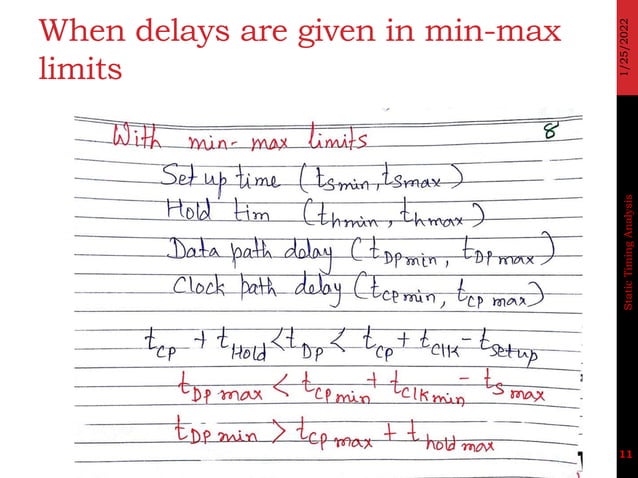 When delays are given in min-max
limits
1/25/2022
With min-max limits
8
Set up time (tsmin, tsmax)
Hold tim (thmin, thmax)
Data path delay (tDPmin, tDPmax)
Clock path delay (tCPmin, tCPmax)
tCP + tHold < tDP < tCP + tCLK - tsetup
tDPmax < tCPmin + tCLKmin - tSmax
tDPmin > tCPmax + tholdmax
Static Timing Analysis
11